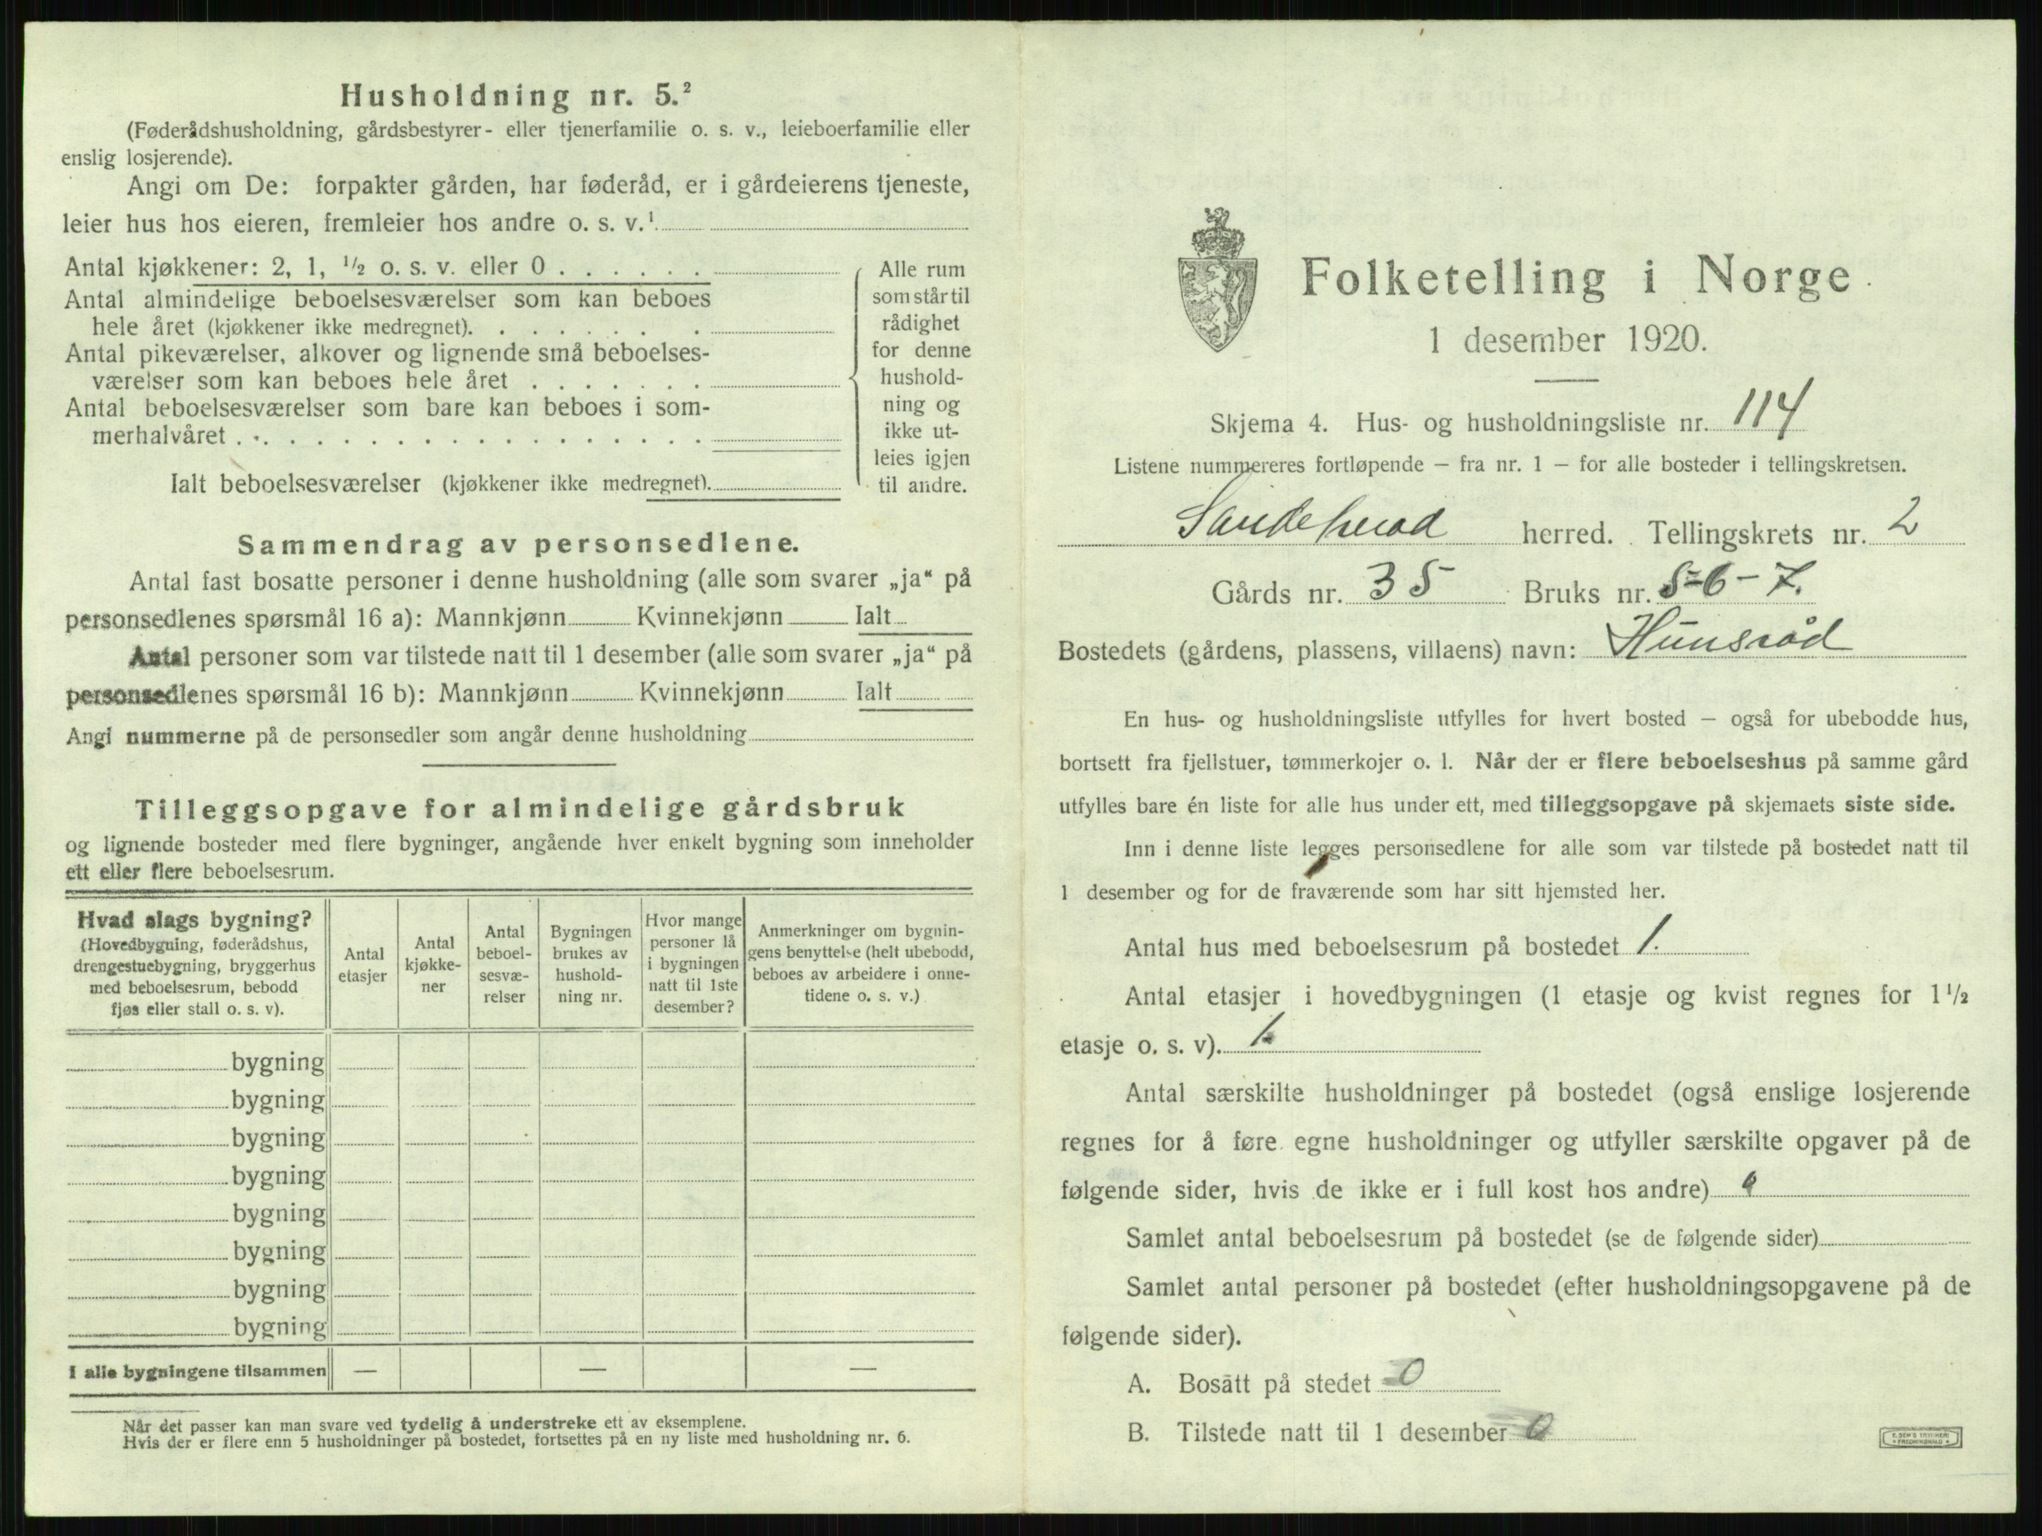 Husholdning nr. 5.²
(Føderådshusholdning, gårdsbestyrer- eller tjenerfamilie o. s. v., leieboerfamilie eller
enslig losjerende).
Angi om De: forpakter gården, har føderåd, er i gårdeierens tjeneste,
leier hus hos eieren, fremleier hos andre o. s. v.¹
Antal kjøkkener: 2, 1, ½ o. s. v. eller 0 . . . . . .
Antal almindelige beboelsesværelser som kan beboes
hele året (kjøkkener ikke medregnet). . . . . . . .
Antal pikeværelser, alkover og lignende små beboelses-
værelser som kan beboes hele året . . . . . . .
Antal beboelsesværelser som bare kan beboes i som-
merhalvåret . . . . . . . . . . . . . . . . .
Ialt beboelsesværelser (kjøkkener ikke medregnet).
Alle rum
som står til
rådighet
for denne
hushold-
ning og
ikke ut-
leies igjen
til andre.
Sammendrag av personsedlene.
Antal fast bosatte personer i denne husholdning (alle som svarer „ja“ på
personsedlenes spørsmål 16 a): Mannkjønn Kvinnekjønn Ialt
Antal personer som var tilstede natt til 1 desember (alle som svarer „ja“ på
personsedlenes spørsmål 16 b): Mannkjønn Kvinnekjønn Ialt
Angi nummerne på de personsedler som angår denne husholdning
Tilleggsopgave for almindelige gårdsbruk
og lignende bosteder med flere bygninger, angående hver enkelt bygning som inneholder
ett eller flere beboelsesrum.
Hvad slags bygning?
(Hovedbygning, føderådshus,
drengestuebygning, bryggerhus
med beboelsesrum, bebodd
fjøs eller stall o. s. v).
Antal
etasjer
Antal
kjøkke-
ner
Antal
beboel-
sesvæ-
relser
Bygningen
brukes av
hushold-
ning nr.
Hvor mange
personer lå
i bygningen
natt til 1ste
desember?
Anmerkninger om bygnin-
gens benyttelse (helt ubebodd,
beboes av arbeidere i onne-
tidene o. s. v.)
bygning
bygning
bygning
bygning
bygning
bygning
bygning
bygning
I alle bygningene tilsammen — — —
Når det passer kan man svare ved tydelig å understreke ett av eksemplene.
Hvis der er flere enn 5 husholdninger på bostedet, fortsettes på en ny liste med husholdning nr. 6.
Folketelling i Norge
1 desember 1920.
Skjema 4. Hus- og husholdningsliste nr. 114
Listene nummereres fortløpende — fra nr. 1 — for alle bosteder i tellingskretsen.
Sandeherad herred. Tellingskrets nr. 2
Gårds nr. 35 Bruks nr. 5-6-7.
Bostedets (gårdens, plassens, villaens) navn: Hunsrød
En hus- og husholdningsliste utfylles for hvert bosted — også for ubebodde hus,
bortsett fra fjellstuer, tømmerkojer o. l. Når der er flere beboelseshus på samme gård
utfylles bare én liste for alle hus under ett, med tilleggsopgave på skjemaets siste side.
Inn i denne liste legges personsedlene for alle som var tilstede på bostedet natt til
1 desember og for de fraværende som har sitt hjemsted her.
Antal hus med beboelsesrum på bostedet 1.
Antal etasjer i hovedbygningen (1 etasje og kvist regnes for 1½
etasje o. s. v). 1.
Antal særskilte husholdninger på bostedet (også enslige losjerende
regnes for å føre egne husholdninger og utfyller særskilte opgaver på de
følgende sider, hvis de ikke er i full kost hos andre) 0
Samlet antal beboelsesrum på bostedet (se de følgende sider)
Samlet antal personer på bostedet (efter husholdningsopgavene på de
følgende sider).
A. Bosatt på stedet 0
B. Tilstede natt til 1 desember 0